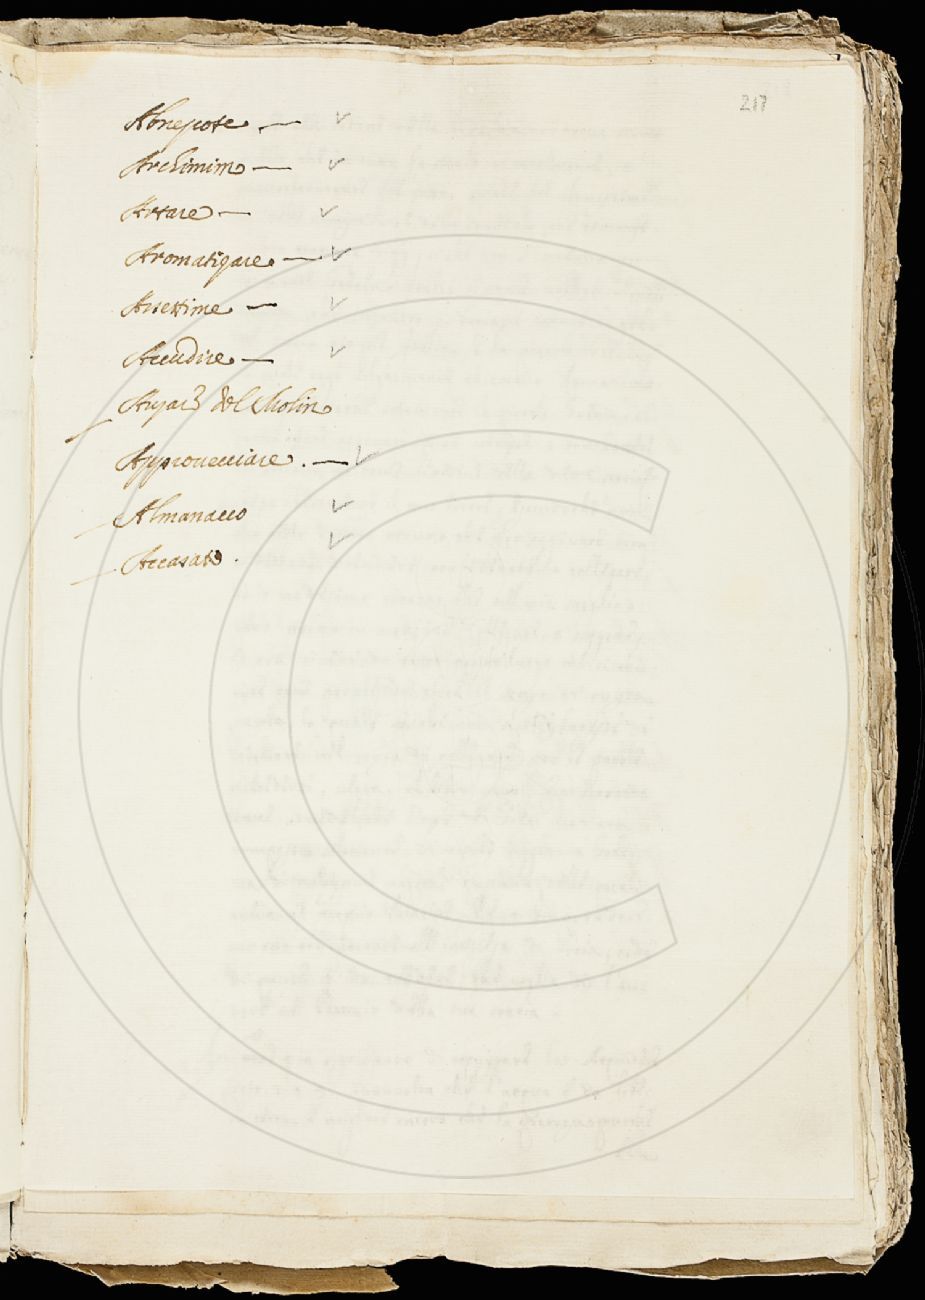 217
Abnepote. —
Archimimo —
Artare —
Aromatizare. —
Assettime —
Accudire —
del Molino
Approuecciare. —
Almanacco
Accasato.